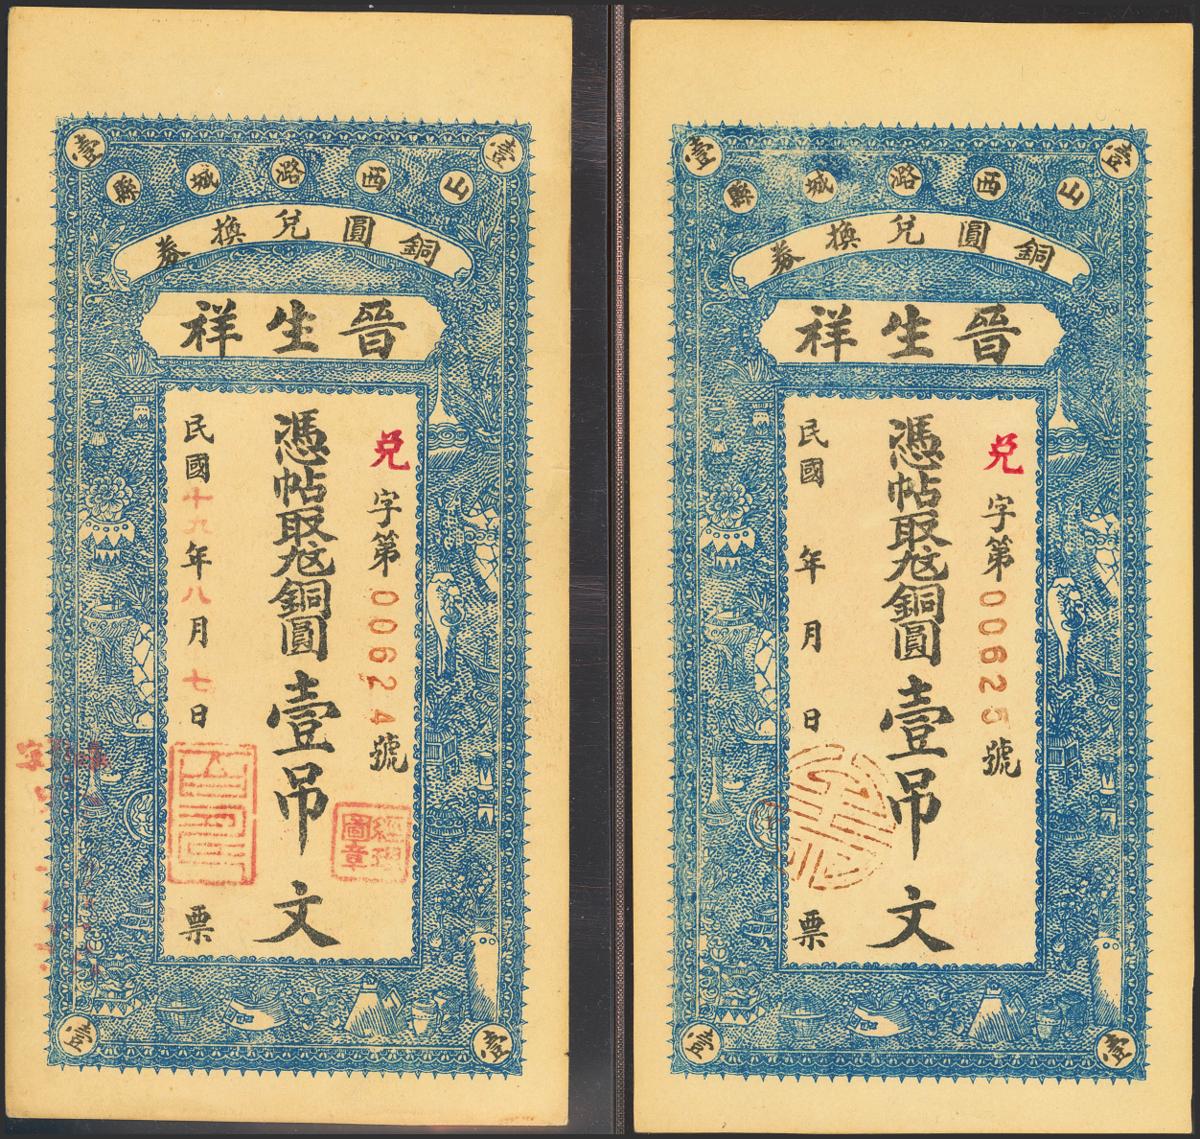 壹 壹
山西潞城縣
銅圓兌換券
晉生祥
兌字第00624號
憑帖取兌銅圓壹吊文
民國十九年八月七日票
經理圖章
壹 壹
壹 壹
山西潞城縣
銅圓兌換券
晉生祥
兌字第00625號
憑帖取兌銅圓壹吊文
民國 年 月 日票
壹 壹